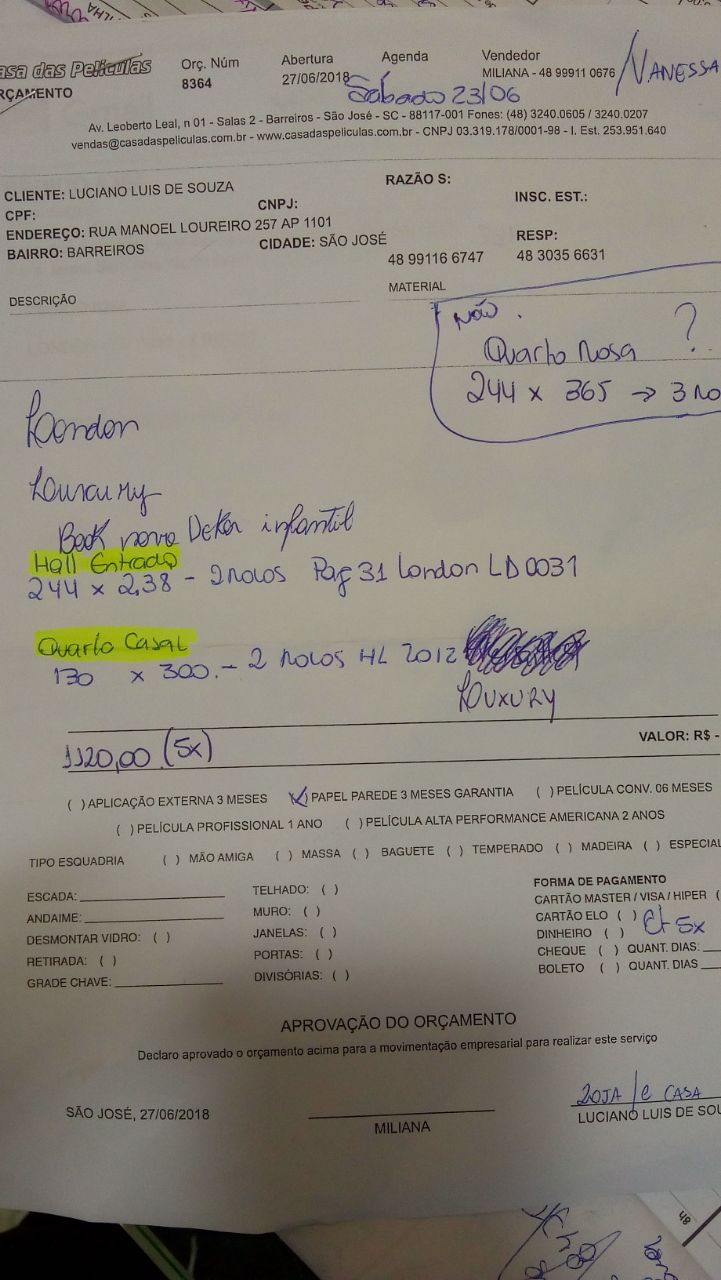 asa das Películas
RÇAMENTO
Orç. Núm
8364
Abertura
27/06/2018
Agenda
Sábado 23/06
Vendedor
MILIANA - 48 99911 0676
VANESSA
Av. Leoberto Leal, n 01 - Salas 2 - Barreiros - São José - SC - 88117-001 Fones: (48) 3240.0605 / 3240.0207
vendas@casadaspeliculas.com.br - www.casadaspeliculas.com.br - CNPJ 03.319.178/0001-98 - I. Est. 253.951.640
CLIENTE: LUCIANO LUIS DE SOUZA
RAZÃO S:
CPF:
CNPJ:
INSC. EST.:
ENDEREÇO: RUA MANOEL LOUREIRO 257 AP 1101
BAIRRO: BARREIROS
CIDADE: SÃO JOSÉ
RESP:
48 99116 6747
48 3035 6631
DESCRIÇÃO
MATERIAL
Não.
Quarto Rosa ?
244 x 365 → 3 ro
London
Book novo Deker infantil
Hall Entrada
244 x 2,38 - 2 rolos Pag 31 London LD 0031
Quarto Casal
130 x 300. - 2 rolos HL 2012
Louxury
1120,00 (5x)
VALOR: R$ -
( ) APLICAÇÃO EXTERNA 3 MESES (✓) PAPEL PAREDE 3 MESES GARANTIA ( ) PELÍCULA CONV. 06 MESES
( ) PELÍCULA PROFISSIONAL 1 ANO ( ) PELÍCULA ALTA PERFORMANCE AMERICANA 2 ANOS
TIPO ESQUADRIA ( ) MÃO AMIGA ( ) MASSA ( ) BAGUETE ( ) TEMPERADO ( ) MADEIRA ( ) ESPECIAL
ESCADA:
ANDAIME:
DESMONTAR VIDRO: ( )
RETIRADA: ( )
GRADE CHAVE:
TELHADO: ( )
MURO: ( )
JANELAS: ( )
PORTAS: ( )
DIVISÓRIAS: ( )
FORMA DE PAGAMENTO
CARTÃO MASTER / VISA / HIPER (
CARTÃO ELO ( )
DINHEIRO ( )
5x
CHEQUE ( ) QUANT. DIAS:
BOLETO ( ) QUANT. DIAS
APROVAÇÃO DO ORÇAMENTO
Declaro aprovado o orçamento acima para a movimentação empresarial para realizar este serviço
SÃO JOSÉ, 27/06/2018
MILIANA
LOJA /e CASA
LUCIANO LUIS DE SOU